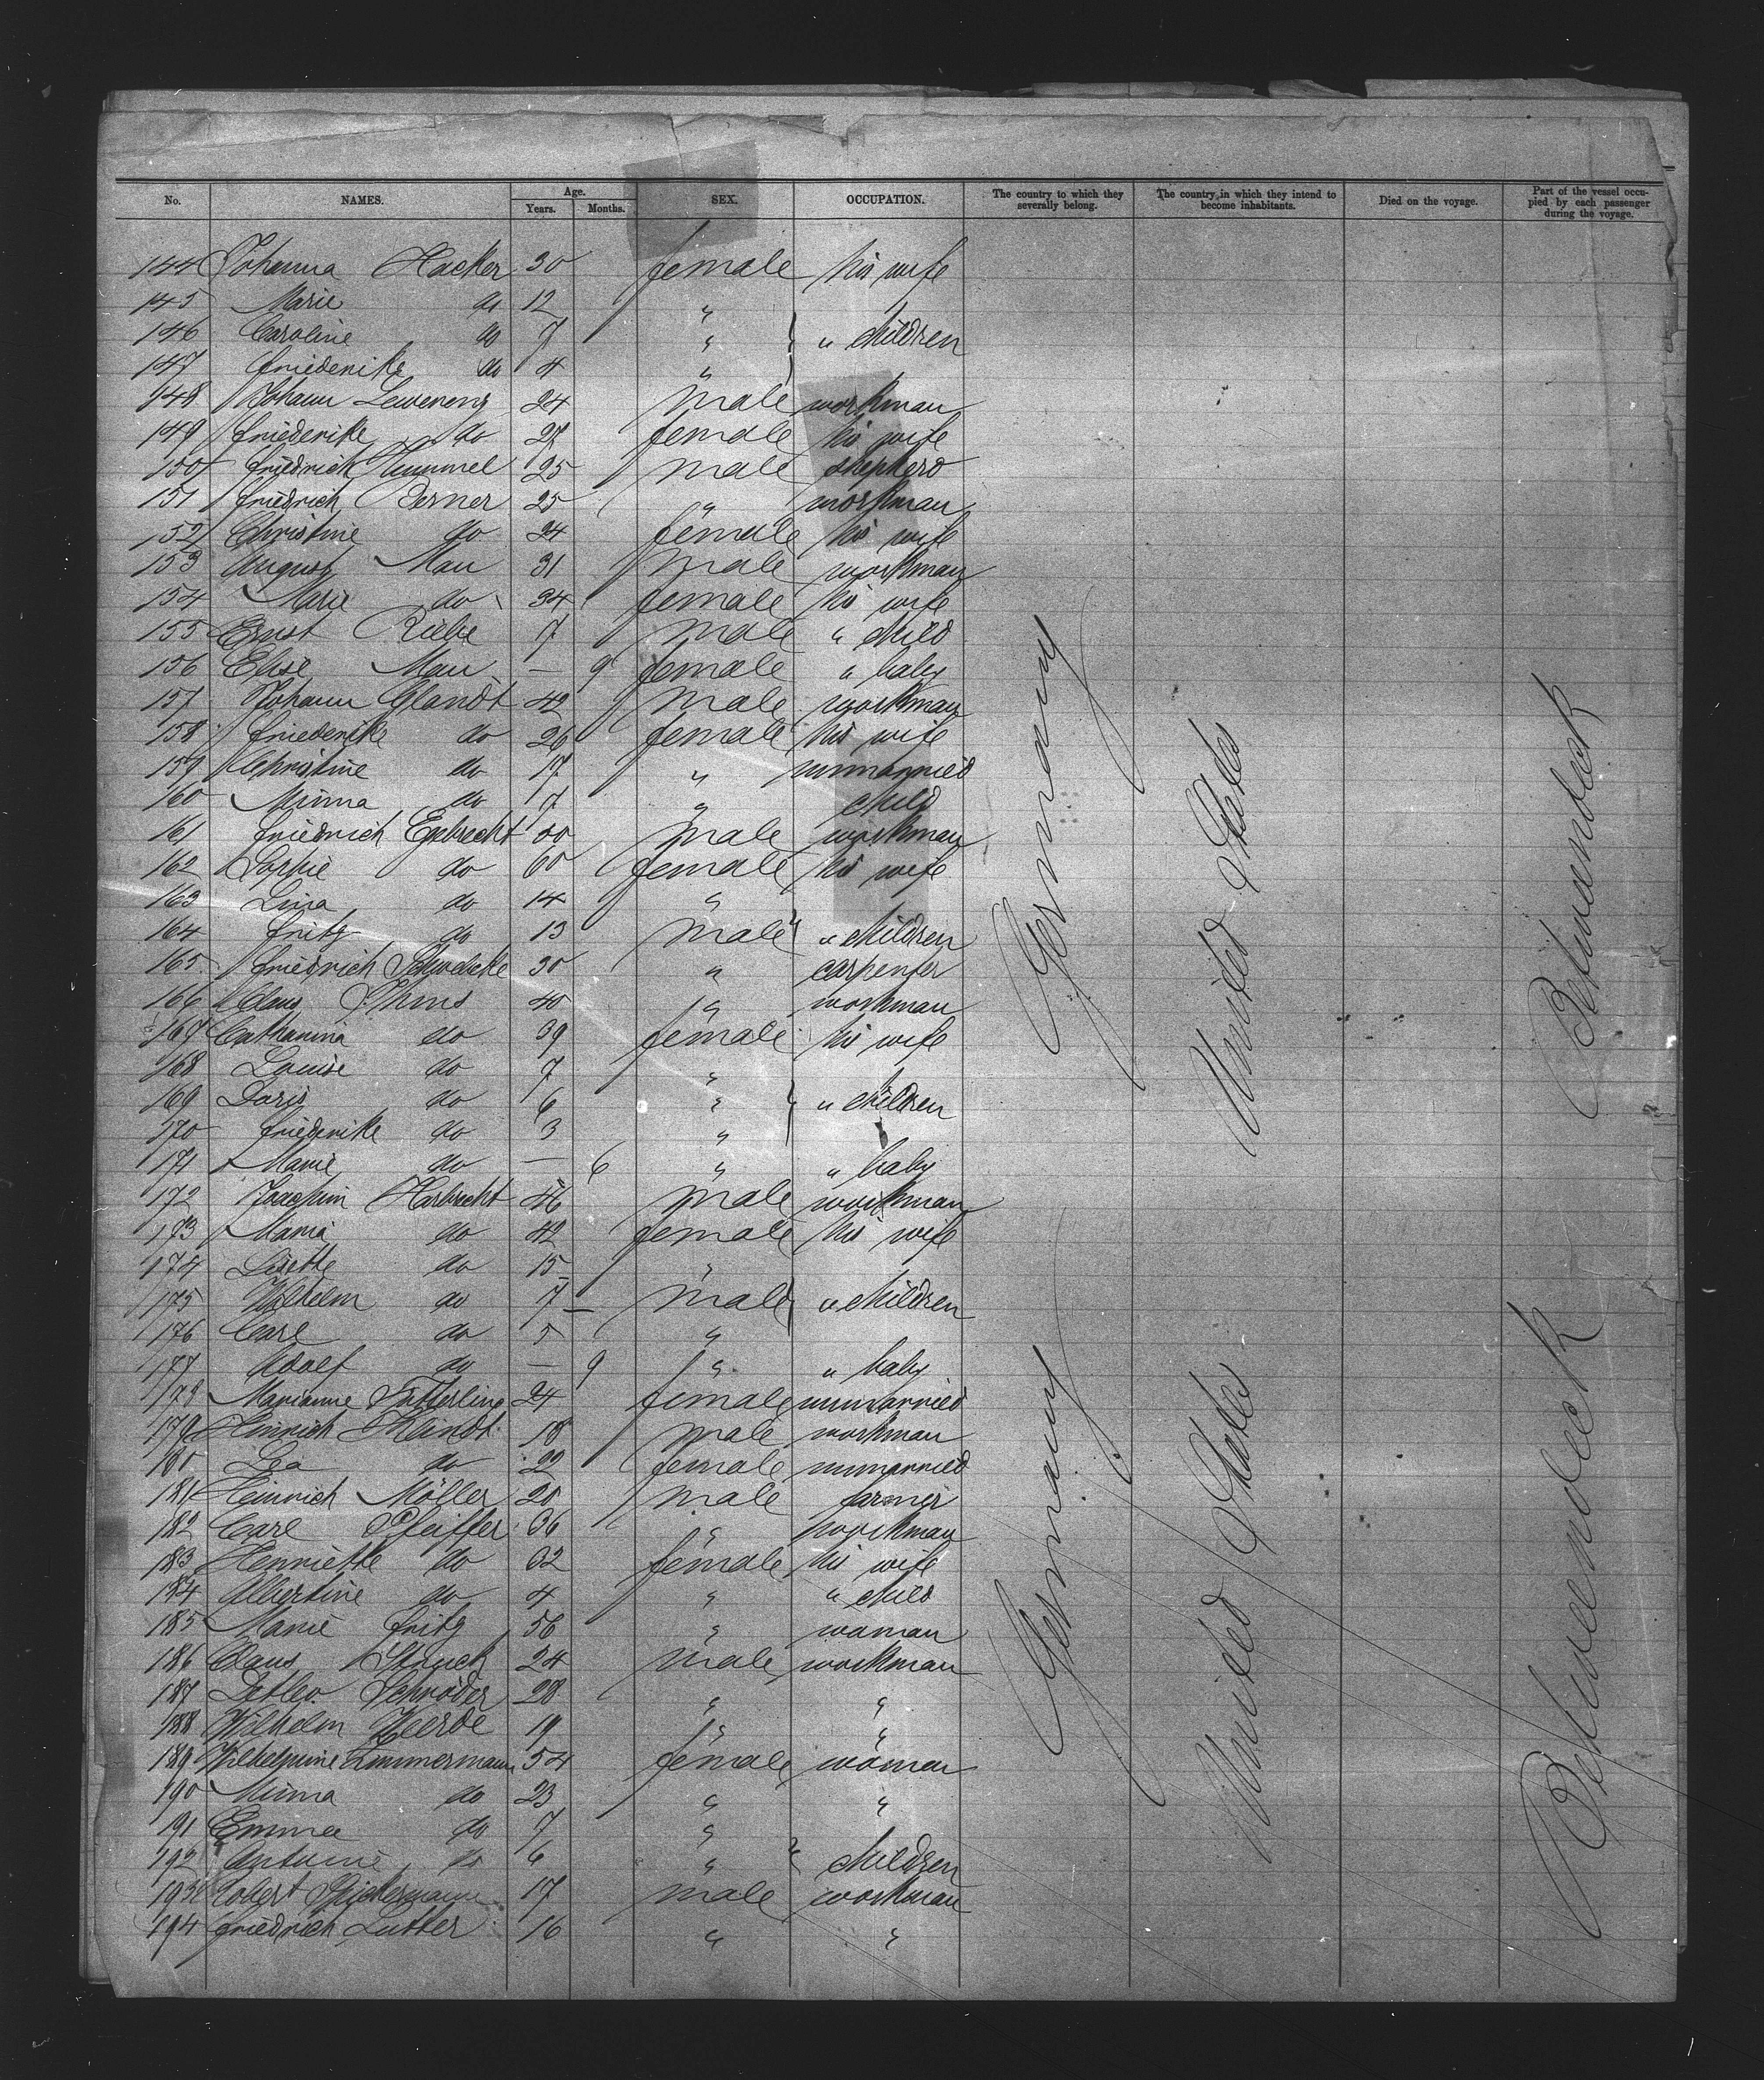 No. NAMES. Age. Years. Months. SEX. OCCUPATION. The country to which they severally belong. The country in which they intend to become inhabitants. Died on the voyage. Part of the vessel occupied by each passenger during the voyage.
144 Johanna Hacker 30 female his wife
145 Marie do 12 "
146 Caroline do 7 " " children
147 Friederike do 4 "
148 Johann 24 male workman
149 Friederike do 27 female his wife
150 Friedrich 25 male shepherd
151 Friedrich 25 " workman
152 Christine do 24 female his wife
153 August Mau 31 male workman
154 Marie do 34 female his wife
155 Ernst 7 male " child
156 Elise Mau — 9 female " baby
157 Johann Glandt 42 male workman
158 Friederike do 26 female his wife
159 Christine do 17 " unmarried
160 Minna do 7 " child
161 Friedrich male workman
162 Sophie do female his wife
163 Lina do 14 "
164 Fritz do 13 male " children
165 Friedrich 30 " carpenter
166 Claus 40 " workman
167 Catharina do 39 female his wife
168 Louise do 7 "
169 Doris do 6 " " children
170 Friederike do 3 "
171 Marie do — 6 " " baby
172 Joachim 46 male workman
173 Maria do 42 female his wife
174 Lisette do 15 "
175 Wilhelm do 7 male " children
176 Carl do 5 "
177 Adolf do — 9 " " baby
178 Marianne 24 female unmarried
179 Heinrich 18 male workman
180 Lea do 22 female unmarried
181 Heinrich Möller 20 male farmer
182 Carl Pfeiffer 36 " workman
183 Henriette do 32 female his wife
184 Albertine do 4 " " child
185 Marie Fritz 56 " woman
186 Claus Struck 24 male workman
187 Detlev Schröder 28 " "
188 Wilhelm 19 " "
189 Wilhelmine Zimmermann 54 female woman
190 Minna do 23 " "
191 Emma do 7 "
192 do 6 " children
193 Robert 17 male workman
194 Friedrich Luther 16 " "
Germany United States Betweendeck
Germany United States Betweendeck